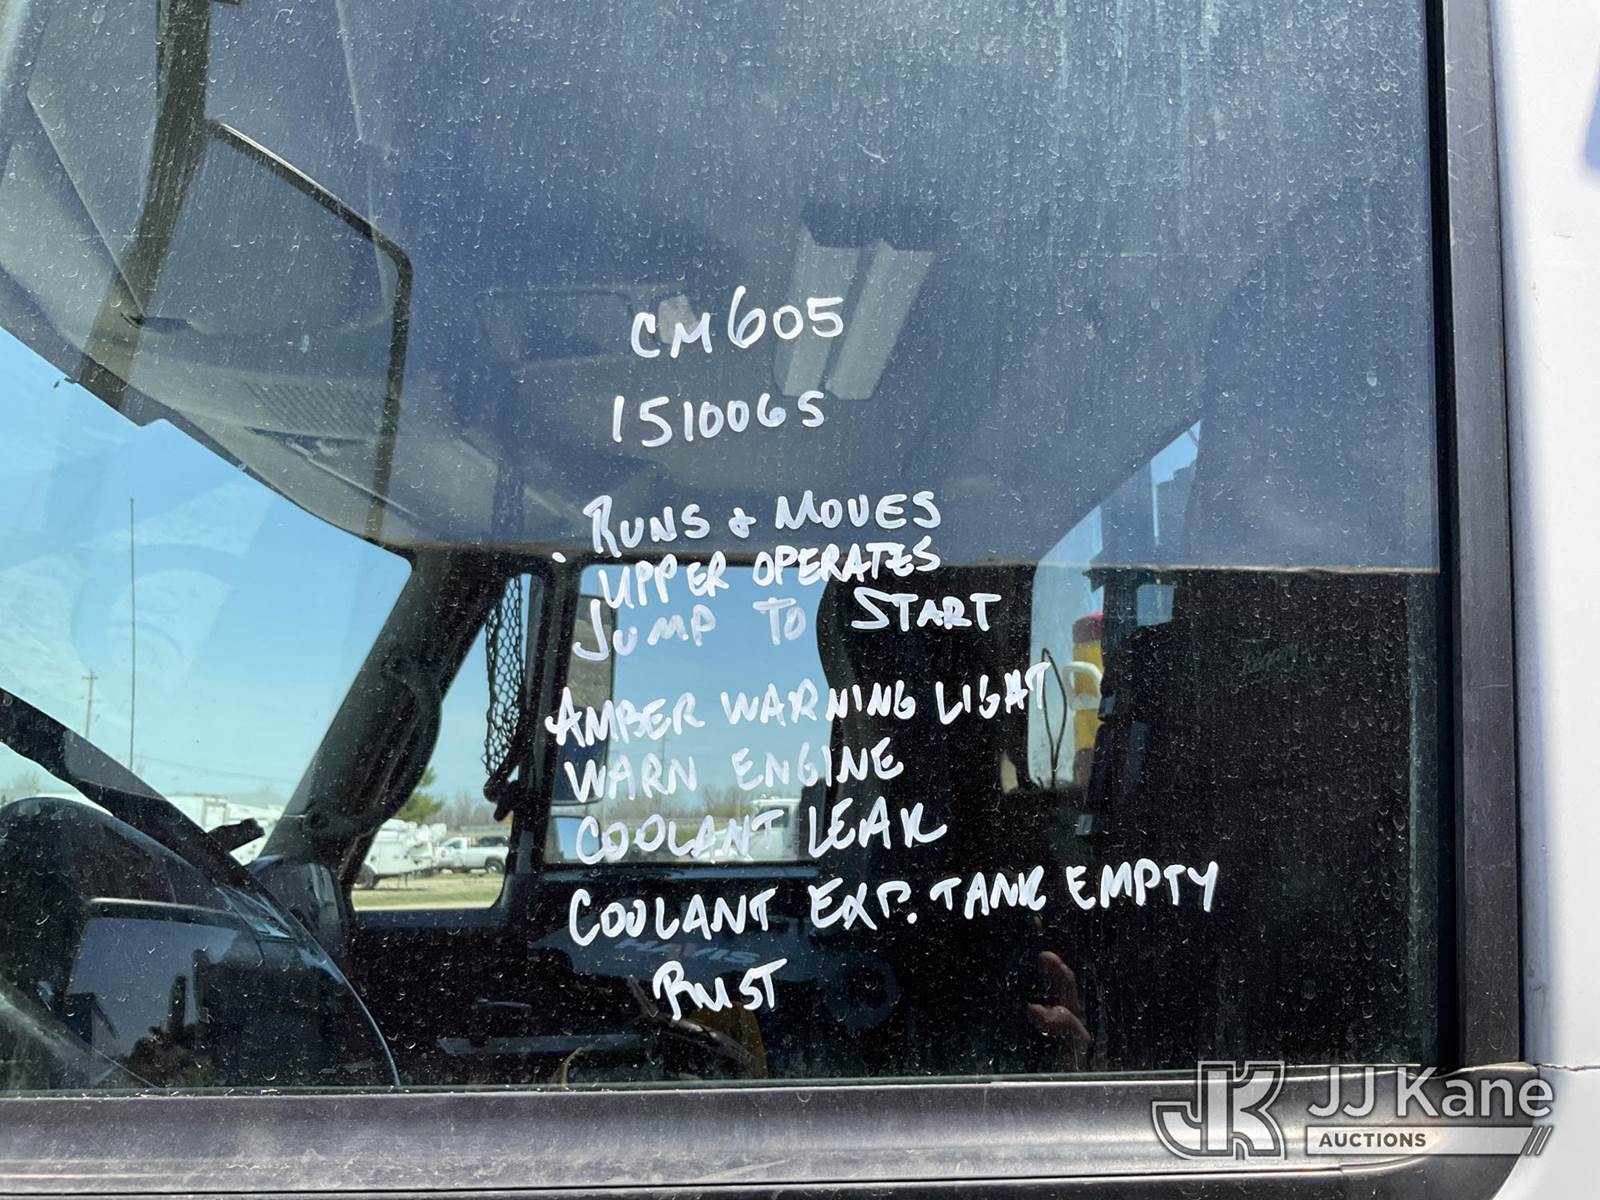 CM605
1510065
RUNS & MOVES
UPPER OPERATES
JUMP TO START
AMBER WARNING LIGHT
WARN ENGINE
COOLANT LEAK
COOLANT EXP. TANK EMPTY
RUST
HAVIS
JJ Kane
AUCTIONS